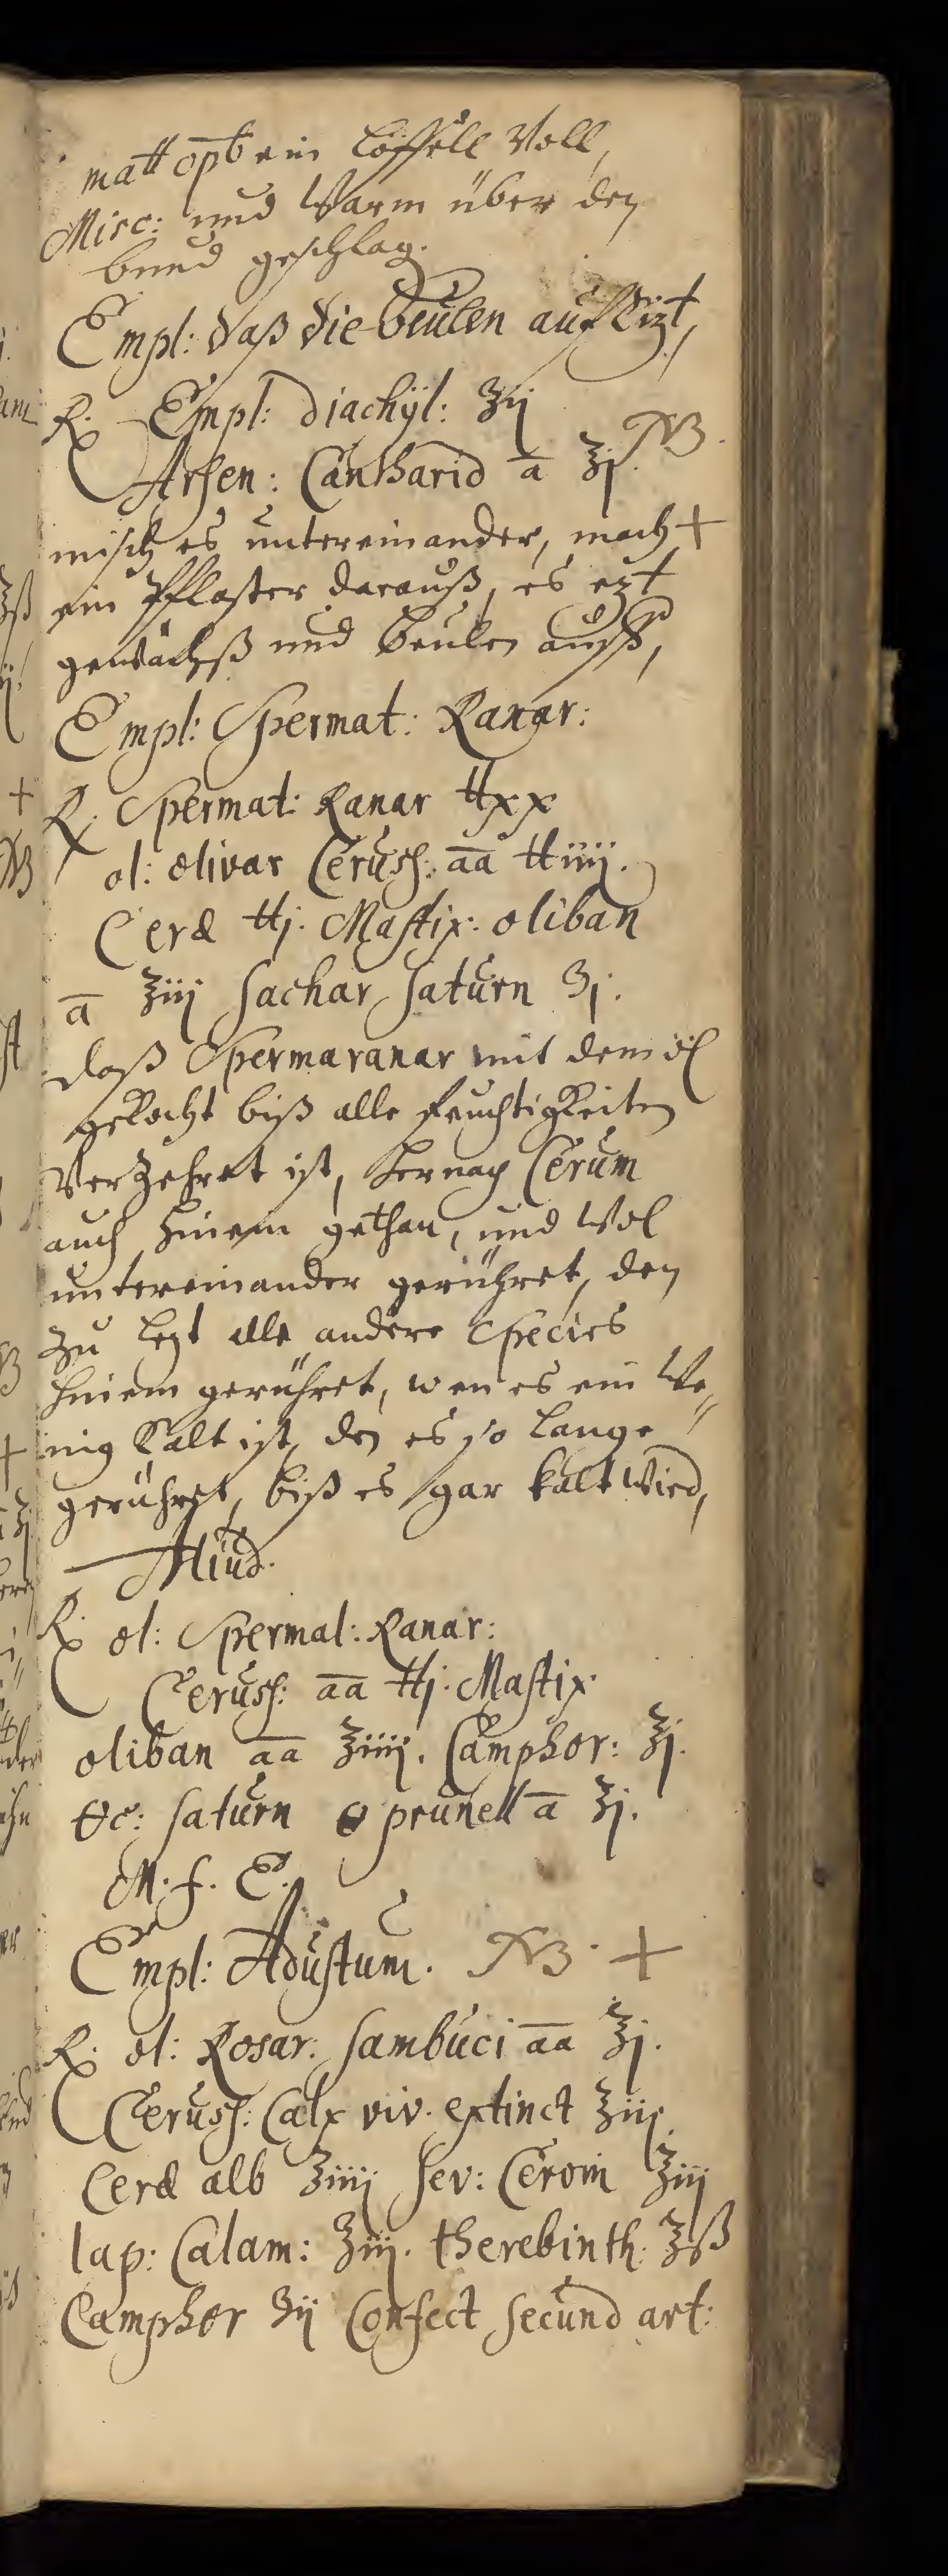 matt opt ein löffell Voll,
Misc: und Warm über den
bund geschlag.
Empl: daß die beulen auf Eizt,
R. Empl: diachÿl: ℥ij
Arsen: Cantharid a ʒj. NB.
misch es untereinander, mach +
ein Pflaster darauß, es ezt
gewächß und beulen auff,
Empl: Spermat: Ranar:
R. Spermat: Ranar ℔xx
ol: olivar Ceruss: aa ℔iiij.
Ceræ ℔j. Mastix: oliban
a ℥iij Sachar Saturn ʒj.
daß Spermaranar mit dem öl
gekocht biß alle feuchtigkeiten
Verzehret ist, hernach Cerum
auch hinein gethan, und Wol
untereinander gerühret, den
zu lezt alle andere Species
hinein gerühret, wen es ein We„
nig kalt ist, den es so lange
gerühret, biß es gar kalt Wird,
Aliud.
R. ol: Spermat: Ranar:
Ceruss: aa ℔j. Mastix
oliban aa ℥iiij. Camphor: ℥j.
Saturn prunell a ℥j.
M. f. E.
Empl: Adustum. NB. +
R. ol: Rosar: Sambuci aa ℥j.
Ceruss: Calx viv. extinct ℥iij.
Ceræ alb ℥iiij Sev: Cervin ℥iij
lap: Calam: ℥iij. therebinth: ℥ß
Camphor ʒij Confect Secund art: